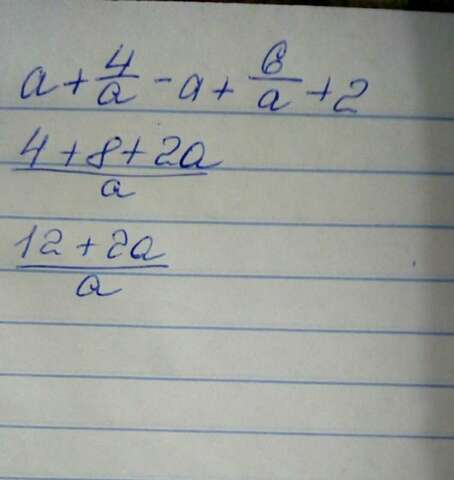 a + 4/a - a + 6/a + 2
4 + 8 + 2a / a
12 + 2a / a